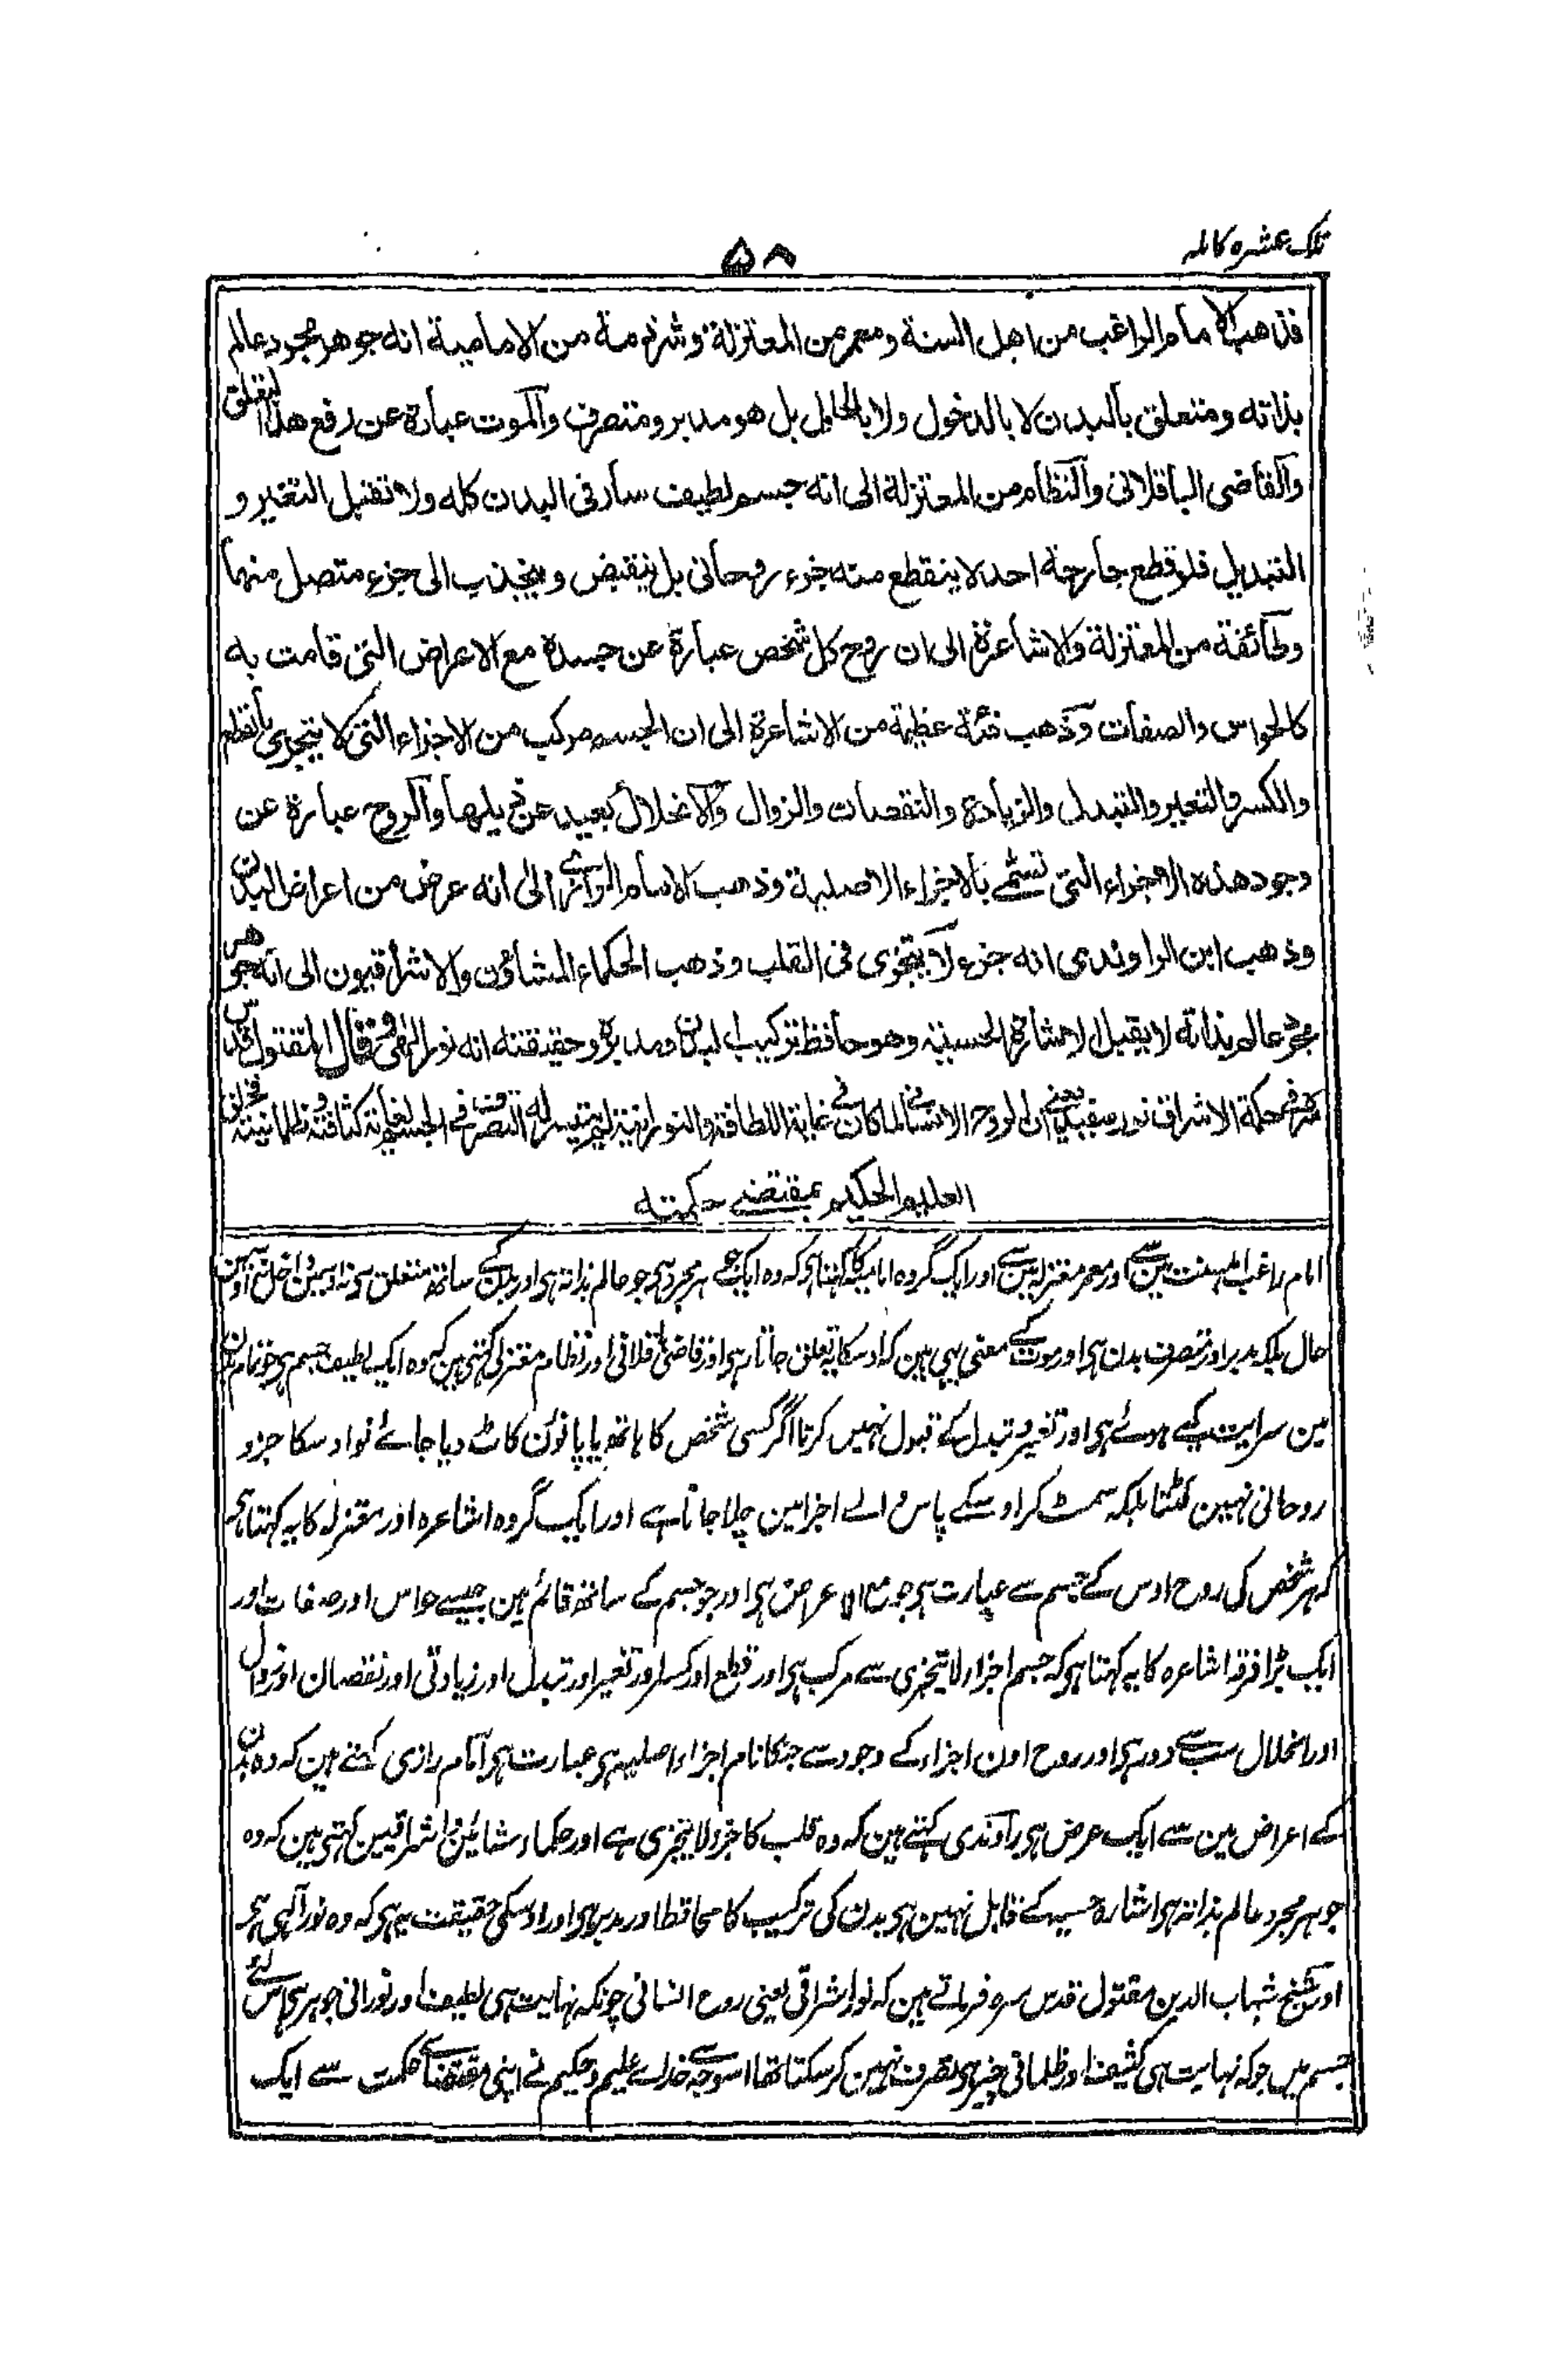 تلک عشرہ کاملہ
۵۸
فذهب الامام الراغب من اهل السنة ومعمر من المعتزلة وشرذمة من الامامية انه جوهر مجرد عالم
بذاته ومتعلق بالبدن لا بالدخول ولا بالحلول بل هو مدبر ومتصرف والموت عبارة عن رفع هذا التعلق
والقاضى الباقلانى والنظام من المعتزلة الى انه جسم لطيف سار فى البدن كله ولا تقبل التغير و
التبديل فلو قطع جارحة احد لا ينقطع منه جزء روحانى بل ينقبض وينجذب الى جزء متصل منها
وطائفة من المعتزلة والاشاعرة الى ان روح كل شخص عبارة عن جسدة مع الاعراض التى قامت به
كالحواس والصفات وذهب فئة عظيمة من الاشاعرة الى ان الجسم مركب من الاجزاء التى لا يتجزى بالقطع
والكسر والتغير والتبدل والزيادة والنقصان والزوال والانحلال بعيد عن ذيلها والروح عبارة عن
وجود هذه الاجزاء التى تسمى بالاجزاء الاصلية وذهب الامام الرازى الى انه عرض من اعراض البدن
وذهب ابن الراوندى انه جزء لا يتجزى فى القلب وذهب الحكماء المشاؤن والاشراقيون الى انه جوهر
مجرد عالم بذاته لا يقبل الاشارة الحسية وهو حافظ تركيب البدن ومدبره وحقيقته انه نور الهى وقال المقتول قدس
سره فى حكمة الاشراق نور يعنى ان الروح الانسانى لما كان فى غاية اللطافة والنورانية لم يتيسر له التصرف فى الجسم لغاية كثافته وظلمانيته فخلق
العليم الحكيم بمقتضى حكمته
امام راغب اہلسنت مین سے اور معمر معتزلہ مین سے اور ایک گروہ امامیہ کا کہتا ہی کہ وہ ایک جوہر مجرد ہی جو عالم بذاتہ ہی اور بدن کے ساتھ متعلق ہی نہ اوسمین داخل ہی نہ اوسمین
حال بلکہ مدبر اور متصرف بدن ہی اور موت کے معنی یہی ہین کہ اوسکا یہ تعلق جاتا رہی اور قاضی باقلانی اور نظام معتزلی کہتی ہین کہ وہ ایک لطیف جسم ہی جو تمام بدن
مین سرایت کیے ہوئے ہی اور تغیر و تبدل کے قبول نہیں کرتا اگر کسی شخص کا ہاتھ یا پانوٗن کاٹ دیا جائے تو اوسکا جزو
روحانی نہین کٹتا بلکہ سمٹ کر اوسکے پاس والے اجزا مین چلا جاتا ہے اور ایک گروہ اشاعرہ اور معتزلہ کا یہ کہتا ہی
کہ ہر شخص کی روح اوس کے جسم سے عبارت ہی جو مع الاعراض ہی اور جو جسم کے ساتھ قائم ہین جیسے حواس اور صفات اور
ایک بڑا فرقہ اشاعرہ کا یہ کہتا ہی کہ جسم اجزاء لا یتجزی سے مرکب ہی اور قطع اور کسر اور تغیر اور تبدل اور زیادتی اور نقصان اور زوال
اور انحلال سب سے دور ہی اور روح اون اجزاء کے وجود سے جنکا نام اجزاء اصلیہ ہی عبارت ہی امام رازی کہتے ہین کہ وہ بدن
کے اعراض مین سے ایک عرض ہی راوندی کہتے ہین کہ وہ قلب کا جزو لا یتجزی ہے اور حکماء مشائین و اشراقیین کہتی ہین کہ وہ
جوہر مجرد عالم بذاتہ ہی اشارہ حسیہ کے قابل نہین ہی بدن کی ترکیب کا محافظ اور مدبر ہی اور اوسکی حقیقت یہ ہی کہ وہ نور الٰہی ہی
اور شیخ شہاب الدین مقتول قدس سرہ فرماتے ہین کہ نور اشراقی یعنی روح انسانی چونکہ نہایت ہی لطیف اور نورانی جوہر ہی اس لئے
جسم میں جو کہ نہایت ہی کثیف اور ظلمانی چیز ہی تصرف نہین کر سکتا تھا اسوجہ سے خداے علیم و حکیم نے اپنی مقتضاے حکمت سے ایک